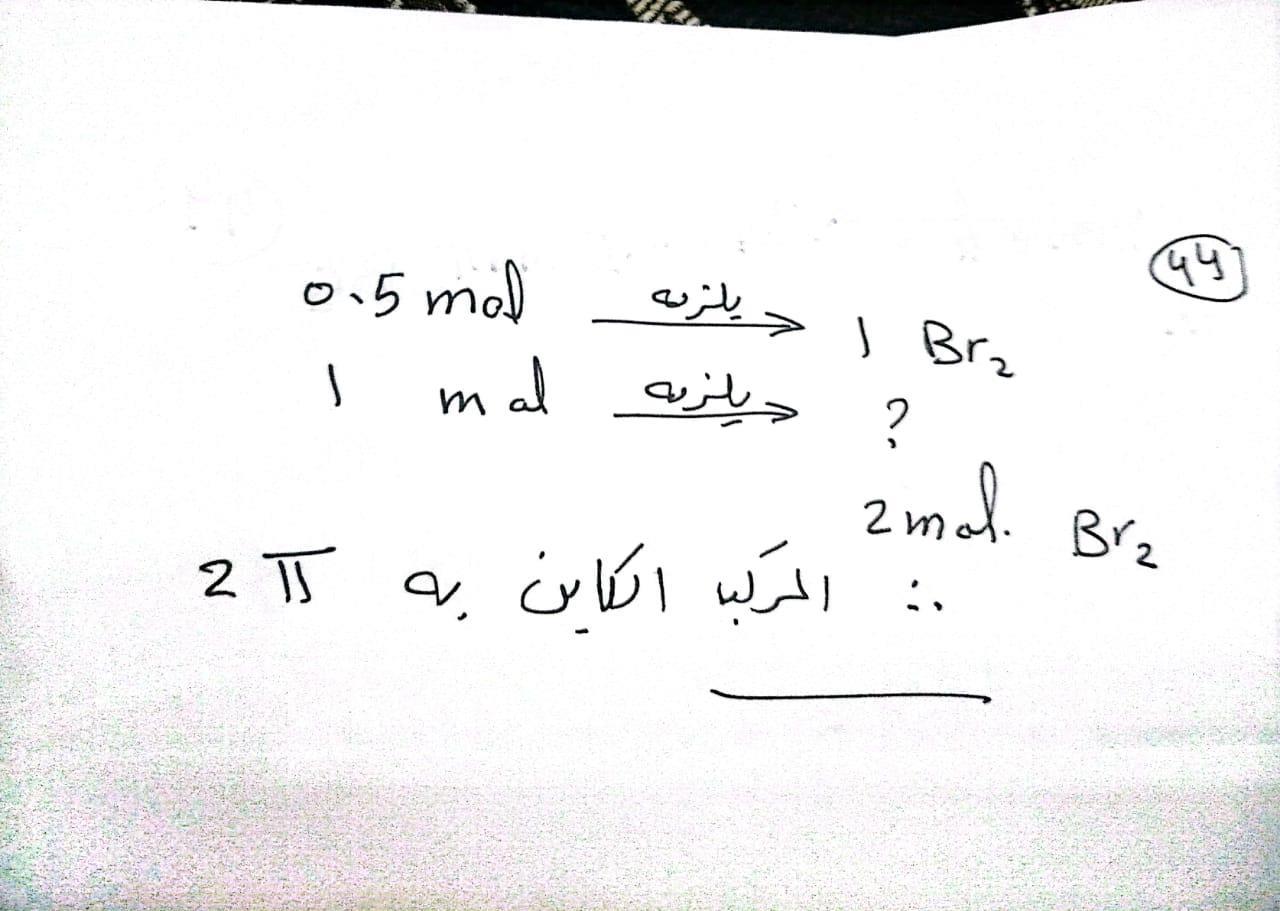 44
0.5 mol يلزمه 1 Br2
1 mol يلزمه ?
2 mol. Br2
∴ المركب الكاين به 2 π